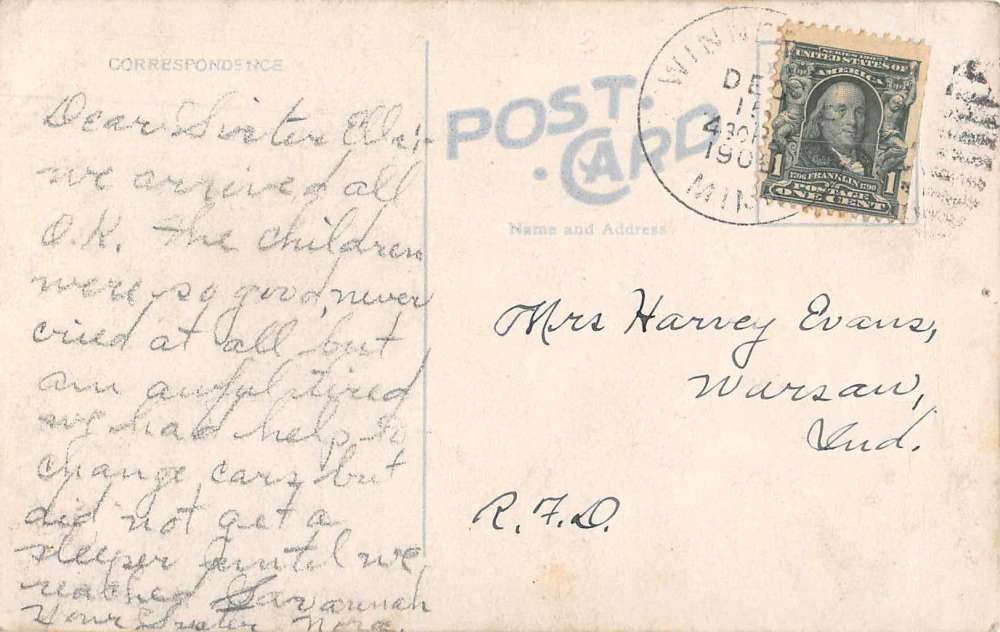 CORRESPONDENCE
Dear Sister Ella:-
we arrived all
O.K. the children
were so good, never
cried at all but
am awful tired
we had help to
change cars, but
did not get a
sleeper until we
reached Savannah
Your Sister Nora.
POST CARD
Name and Address
WINN
DE
15
430P
190
MIN
SERIES 1902
UNITED STATES OF
AMERICA
1706 FRANKLIN 1790
1 POSTAGE 1
ONE CENT
Mrs Harvey Evans,
Warsaw,
Ind.
R.F.D.